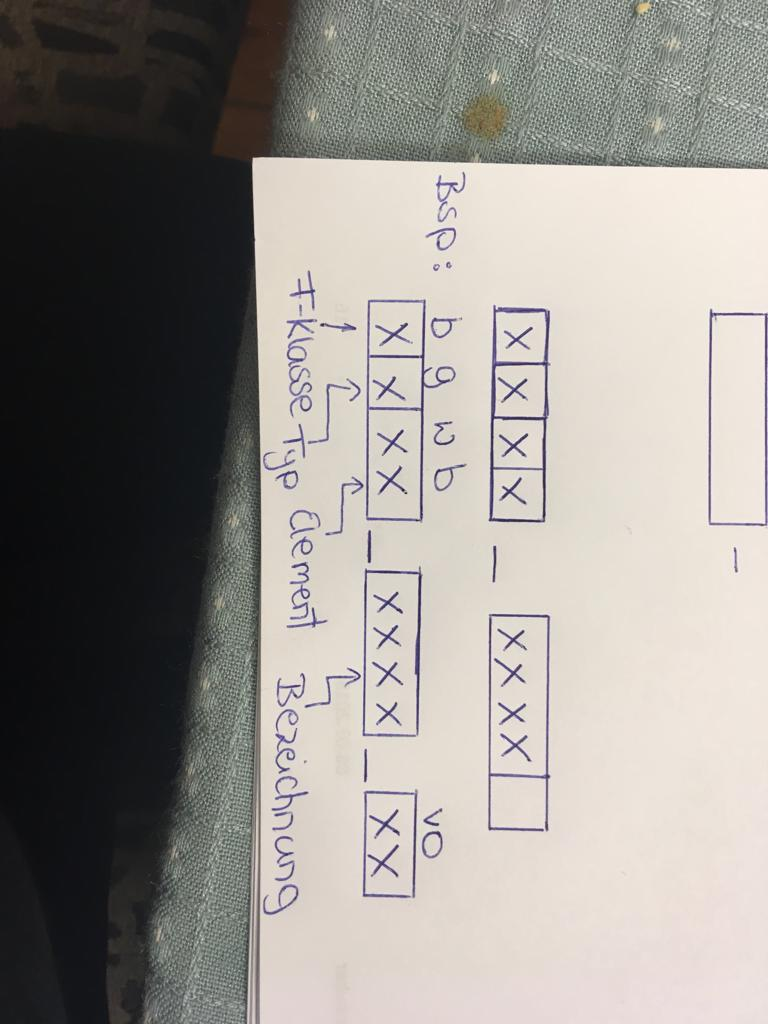 -
X X X X - XXXX
Bsp: b g w b vo
X X XX - XXXX - XX
F-Klasse Typ Element Bezeichnung